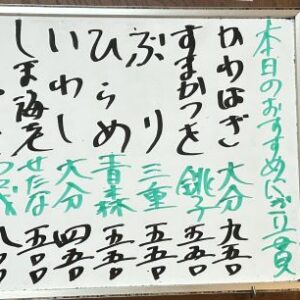 本日のおすすめにぎり一貫
かわはぎ 大分 九五〇
すまかつを 銚子 五五〇
ぶり 三重 五五〇
ひらめ 青森 五五〇
いわし 大分 四五〇
しま海老 せたな 五五〇